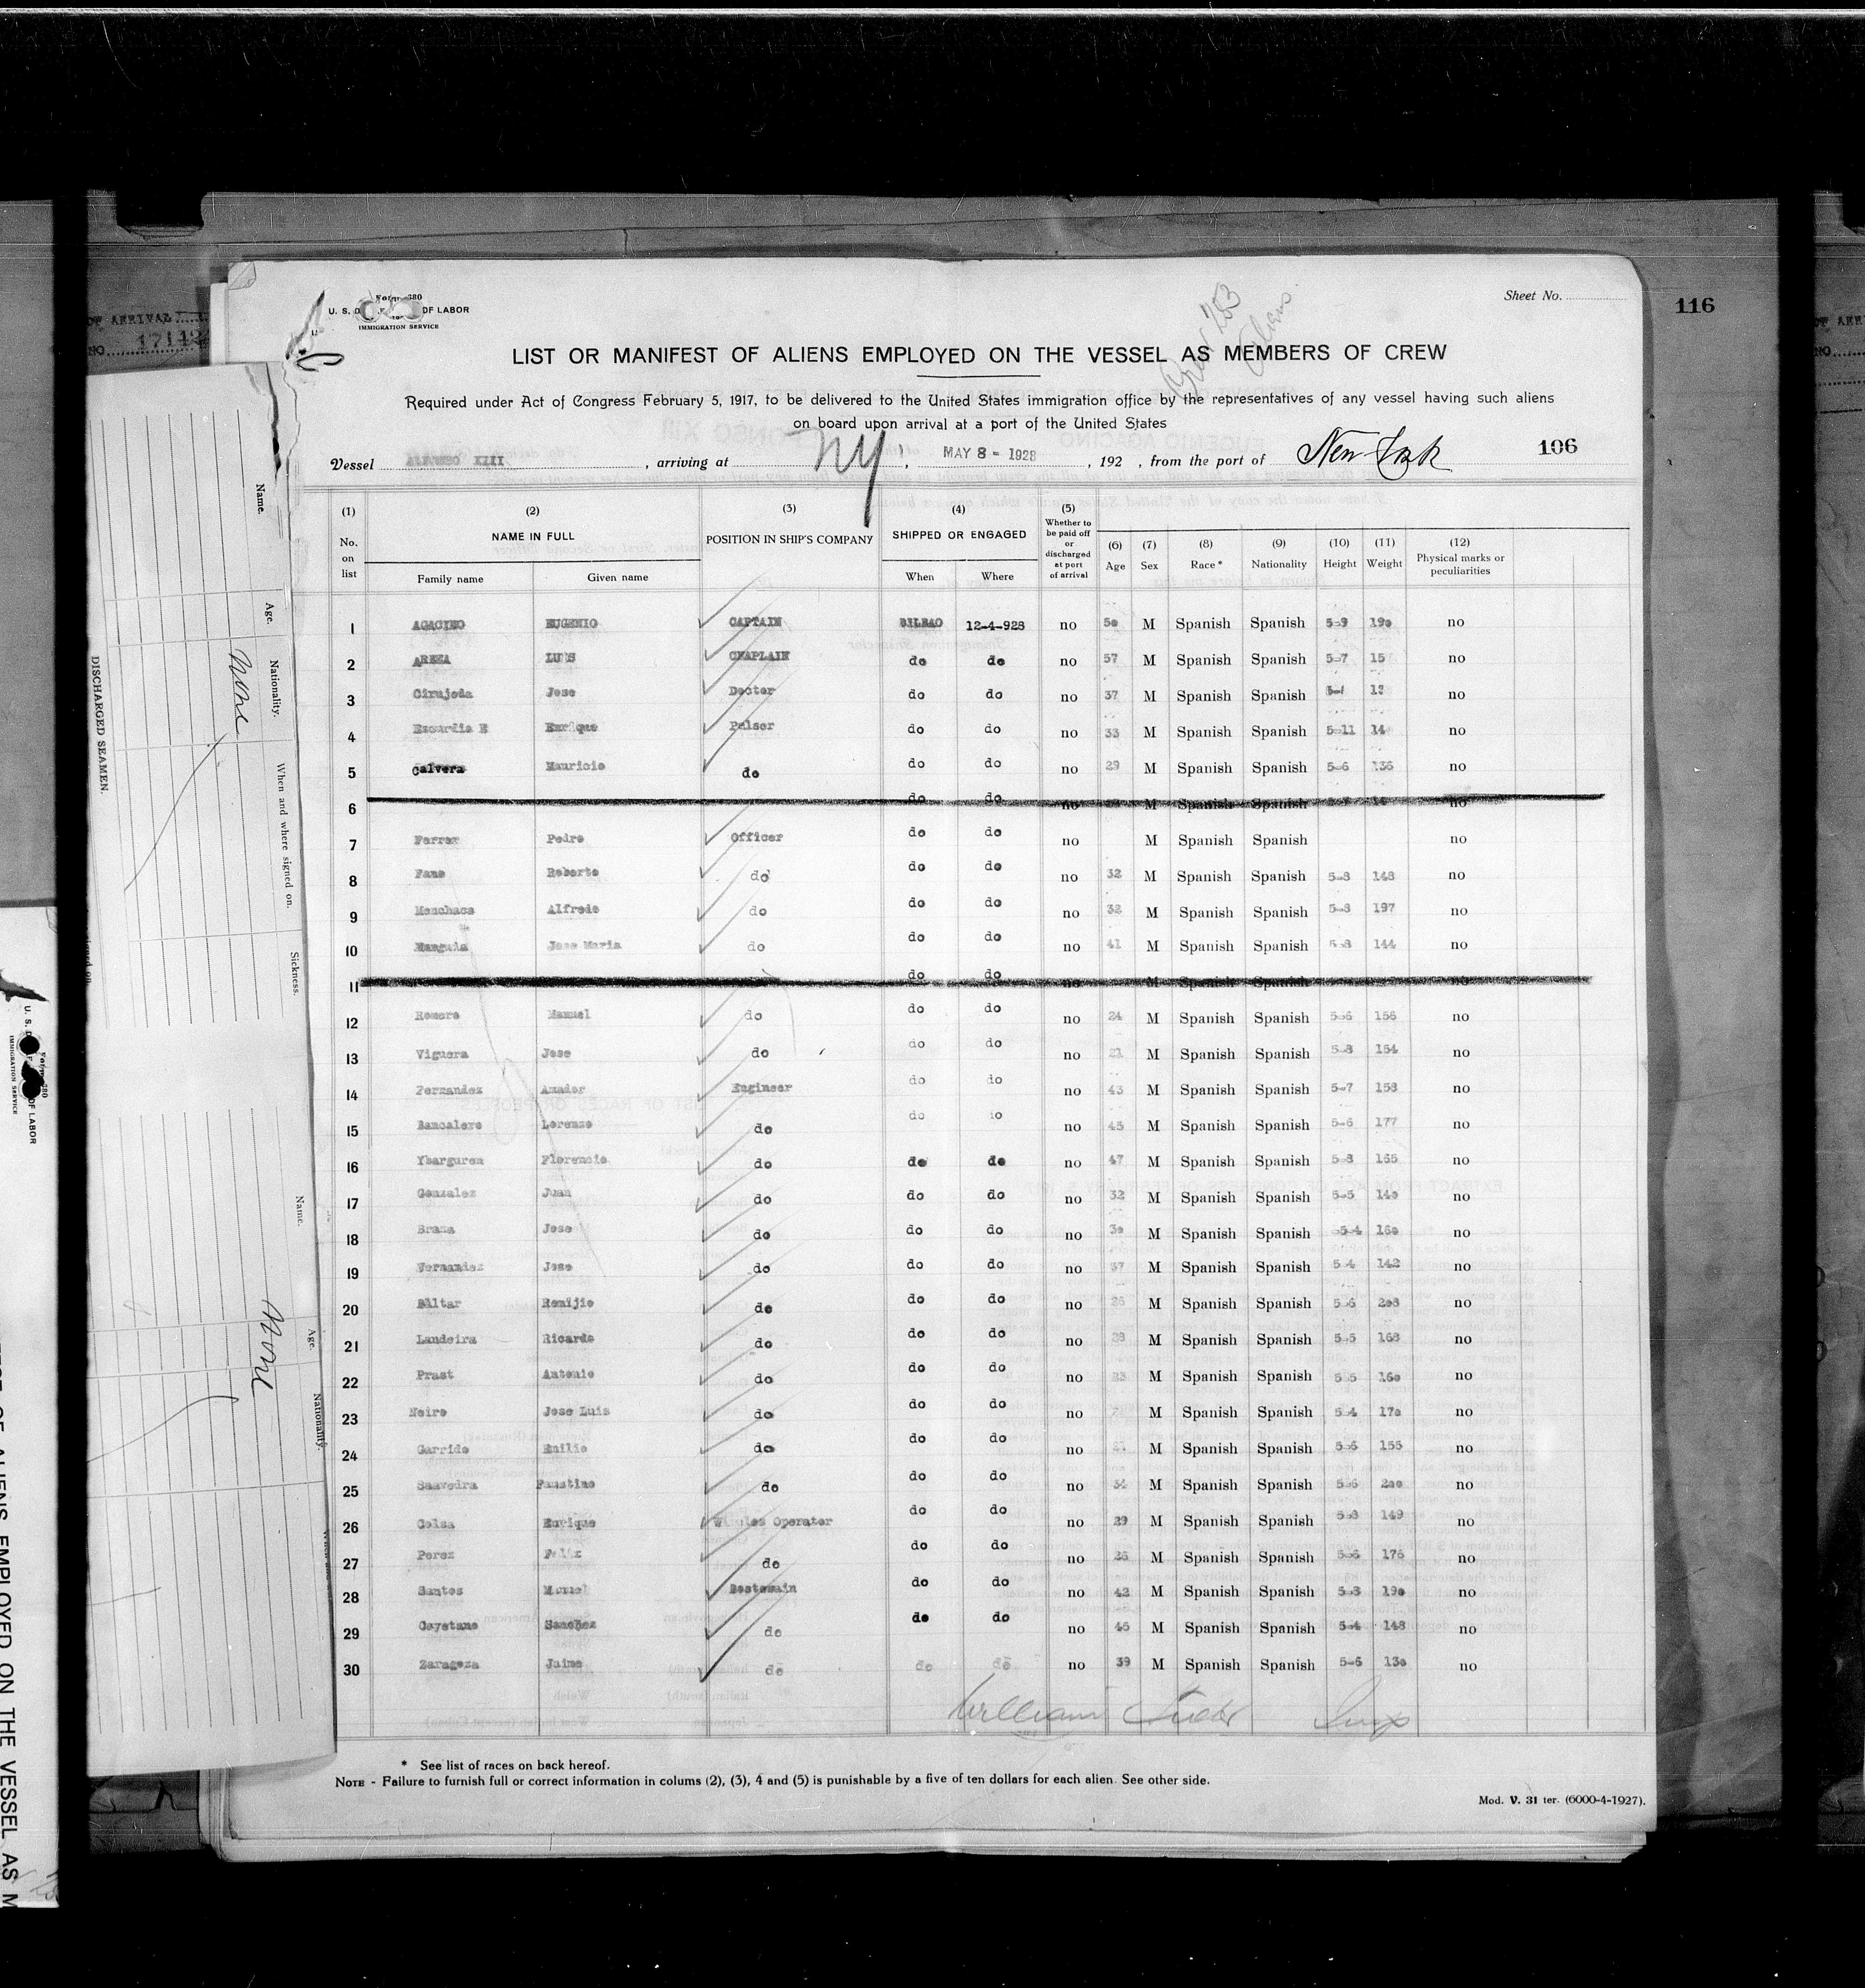 116
Form 680
U. S. D OF LABOR
IMMIGRATION SERVICE
Sheet No.
Crew 253
Aliens
LIST OR MANIFEST OF ALIENS EMPLOYED ON THE VESSEL AS MEMBERS OF CREW
Required under Act of Congress February 5, 1917, to be delivered to the United States immigration office by the representatives of any vessel having such aliens
on board upon arrival at a port of the United States
Vessel ALFONSO XIII, arriving at NY, MAY 8 - 1928, 192 , from the port of New York 106
(1) (2) (3) (4) (5)
No. on list NAME IN FULL POSITION IN SHIP'S COMPANY SHIPPED OR ENGAGED Whether to be paid off or discharged at port of arrival (6) Age (7) Sex (8) Race * (9) Nationality (10) Height (11) Weight (12) Physical marks or peculiarities
Family name Given name When Where
1 AGACINO EUGENIO CAPTAIN BILBAO 12-4-928 no 50 M Spanish Spanish 5-9 190 no
2 AREZA LUIS CHAPLAIN do do no 57 M Spanish Spanish 5-7 15 no
3 Cirujeda Jose Doctor do do no 37 M Spanish Spanish no
4 Escurdia E Enrique Pulser do do no 33 M Spanish Spanish 5-11 14 no
5 Calvera Mauricio do do do no 29 M Spanish Spanish 5-6 136 no
6 do do no M Spanish Spanish no
7 Ferrer Pedro Officer do do no M Spanish Spanish no
8 Fano Roberto do do do no 32 M Spanish Spanish 5-8 148 no
9 Menchaca Alfredo do do do no 32 M Spanish Spanish 5-8 197 no
10 Munguia Jose Maria do do do no 41 M Spanish Spanish 5-8 144 no
11 do do no M Spanish Spanish no
12 Romero Manuel do do do no 24 M Spanish Spanish 5-6 156 no
13 Viguera Jose do do do no 21 M Spanish Spanish 5-8 154 no
14 Fernandez Amador Engineer do do no 43 M Spanish Spanish 5-7 158 no
15 Bancalero Lorenzo do do do no 45 M Spanish Spanish 5-6 177 no
16 Ybarguren Florencio do do do no 47 M Spanish Spanish 5-8 165 no
17 Gonzalez Juan do do do no 32 M Spanish Spanish 5-5 140 no
18 Brana Jose do do do no 30 M Spanish Spanish 5-4 160 no
19 Fernandez Jose do do do no 37 M Spanish Spanish 5-4 142 no
20 Baltar Remijio do do do no 26 M Spanish Spanish 5-6 208 no
21 Landeira Ricardo do do do no 28 M Spanish Spanish 5-5 168 no
22 Prast Antonio do do do no M Spanish Spanish 5-5 160 no
23 Neiro Jose Luis do do do no M Spanish Spanish 5-4 170 no
24 Garrido Emilio do do do no M Spanish Spanish 5-6 155 no
25 Saavedra Faustino do do do no M Spanish Spanish 5-6 200 no
26 Celsa Enrique Wireles Operator do do no 29 M Spanish Spanish 5-8 149 no
27 Perez Felix do do do no 26 M Spanish Spanish 5-6 176 no
28 Santos Manuel Bostswain do do no 42 M Spanish Spanish 5-8 190 no
29 Cayetano Sanchez do do do no 45 M Spanish Spanish 5-4 148 no
30 Zaragoza Jaime do do do no 39 M Spanish Spanish 5-6 130 no
William
* See list of races on back hereof.
NOTE - Failure to furnish full or correct information in colums (2), (3), 4 and (5) is punishable by a five of ten dollars for each alien. See other side.
Mod. V. 31 ter. (6000-4-1927).
DISCHARGED SEAMEN.
Name. Age. Nationality. When and where signed on. Sickness.
None
Name. Age. Nationality.
None
OF ARRIVAL
NO. 17142
U. S. D OF LABOR
IMMIGRATION SERVICE
OF ALIENS EMPLOYED ON THE VESSEL AS M